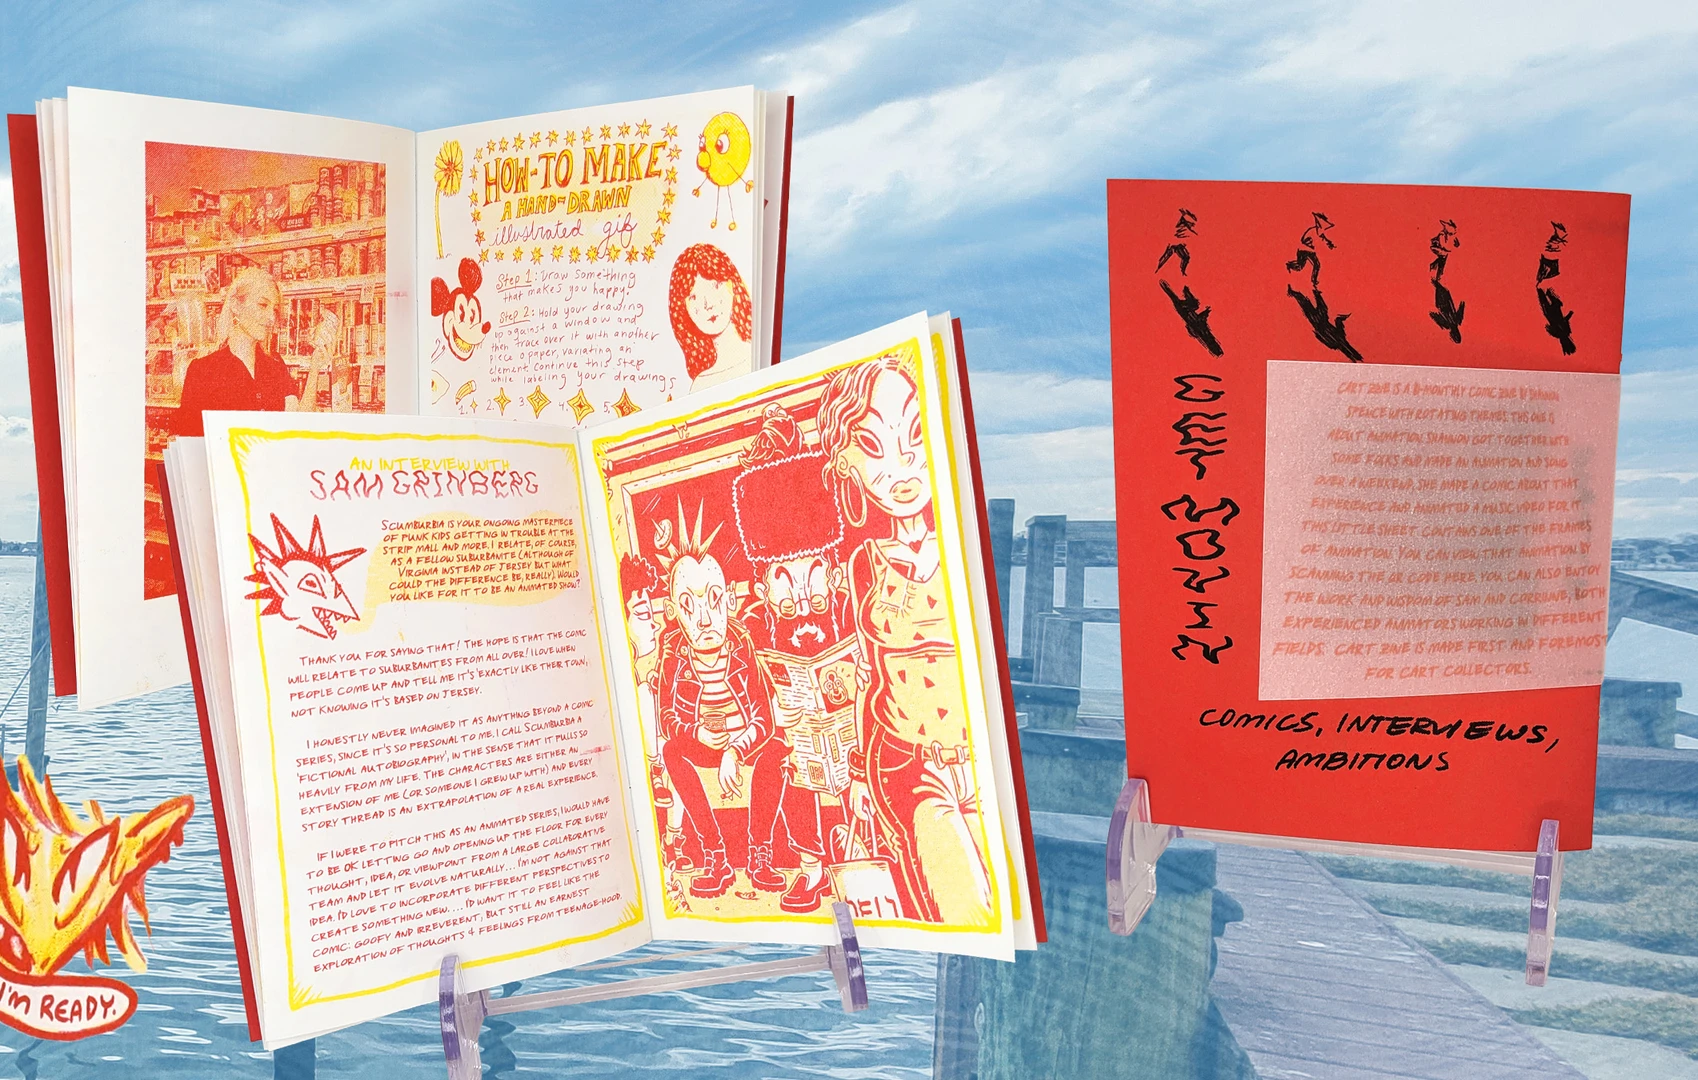 HOW-TO MAKE
A HAND-DRAWN
illustrated gif
Step 1: Draw something
that makes you happy.
Step 2: Hold your drawing
up against a window and
then trace over it with another
piece o paper, variating an
element. Continue this step
while labeling your drawings
1. 2. 3. 4. 5.
AN INTERVIEW WITH
SAM GRINBERG
SCUMBURBIA IS YOUR ONGOING MASTERPIECE
OF PUNK KIDS GETTING IN TROUBLE AT THE
STRIP MALL AND MORE. I RELATE, OF COURSE,
AS A FELLOW SUBURBANITE (ALTHOUGH OF
VIRGINIA INSTEAD OF JERSEY BUT WHAT
COULD THE DIFFERENCE BE, REALLY). WOULD
YOU LIKE FOR IT TO BE AN ANIMATED SHOW?
THANK YOU FOR SAYING THAT! THE HOPE IS THAT THE COMIC
WILL RELATE TO SUBURBANITES FROM ALL OVER! I LOVE WHEN
PEOPLE COME UP AND TELL ME IT'S 'EXACTLY LIKE THEIR TOWN',
NOT KNOWING IT'S BASED ON JERSEY.
I HONESTLY NEVER IMAGINED IT AS ANYTHING BEYOND A COMIC
SERIES, SINCE IT'S SO PERSONAL TO ME. I CALL SCUMBURBIA A
'FICTIONAL AUTOBIOGRAPHY', IN THE SENSE THAT IT PULLS SO
HEAVILY FROM MY LIFE. THE CHARACTERS ARE EITHER AN
EXTENSION OF ME (OR SOMEONE I GREW UP WITH) AND EVERY
STORY THREAD IS AN EXTRAPOLATION OF A REAL EXPERIENCE.
IF I WERE TO PITCH THIS AS AN ANIMATED SERIES, I WOULD HAVE
TO BE OK LETTING GO AND OPENING UP THE FLOOR FOR EVERY
THOUGHT, IDEA, OR VIEWPOINT FROM A LARGE COLLABORATIVE
TEAM AND LET IT EVOLVE NATURALLY... I'M NOT AGAINST THAT
IDEA. I'D LOVE TO INCORPORATE DIFFERENT PERSPECTIVES TO
CREATE SOMETHING NEW.... I'D WANT IT TO FEEL LIKE THE
COMIC: GOOFY AND IRREVERENT, BUT STILL AN EARNEST
EXPLORATION OF THOUGHTS & FEELINGS FROM TEENAGE-HOOD.
I'M READY.
CART ZINE IS A BI-MONTHLY COMIC ZINE BY SHANNON
SPENCE WITH ROTATING THEMES. THIS ONE IS
ABOUT ANIMATION. SHANNON GOT TOGETHER WITH
SOME FOLKS AND MADE AN ANIMATION AND SONG
OVER A WEEKEND. SHE MADE A COMIC ABOUT THAT
EXPERIENCE AND ANIMATED A MUSIC VIDEO FOR IT.
THIS LITTLE SHEET CONTAINS ONE OF THE FRAMES
OF ANIMATION. YOU CAN VIEW THAT ANIMATION BY
SCANNING THE QR CODE HERE. YOU CAN ALSO ENJOY
THE WORK AND WISDOM OF SAM AND CORRINNE, BOTH
EXPERIENCED ANIMATORS WORKING IN DIFFERENT
FIELDS. CART ZINE IS MADE FIRST AND FOREMOST
FOR CART COLLECTORS.
COMICS, INTERVIEWS,
AMBITIONS